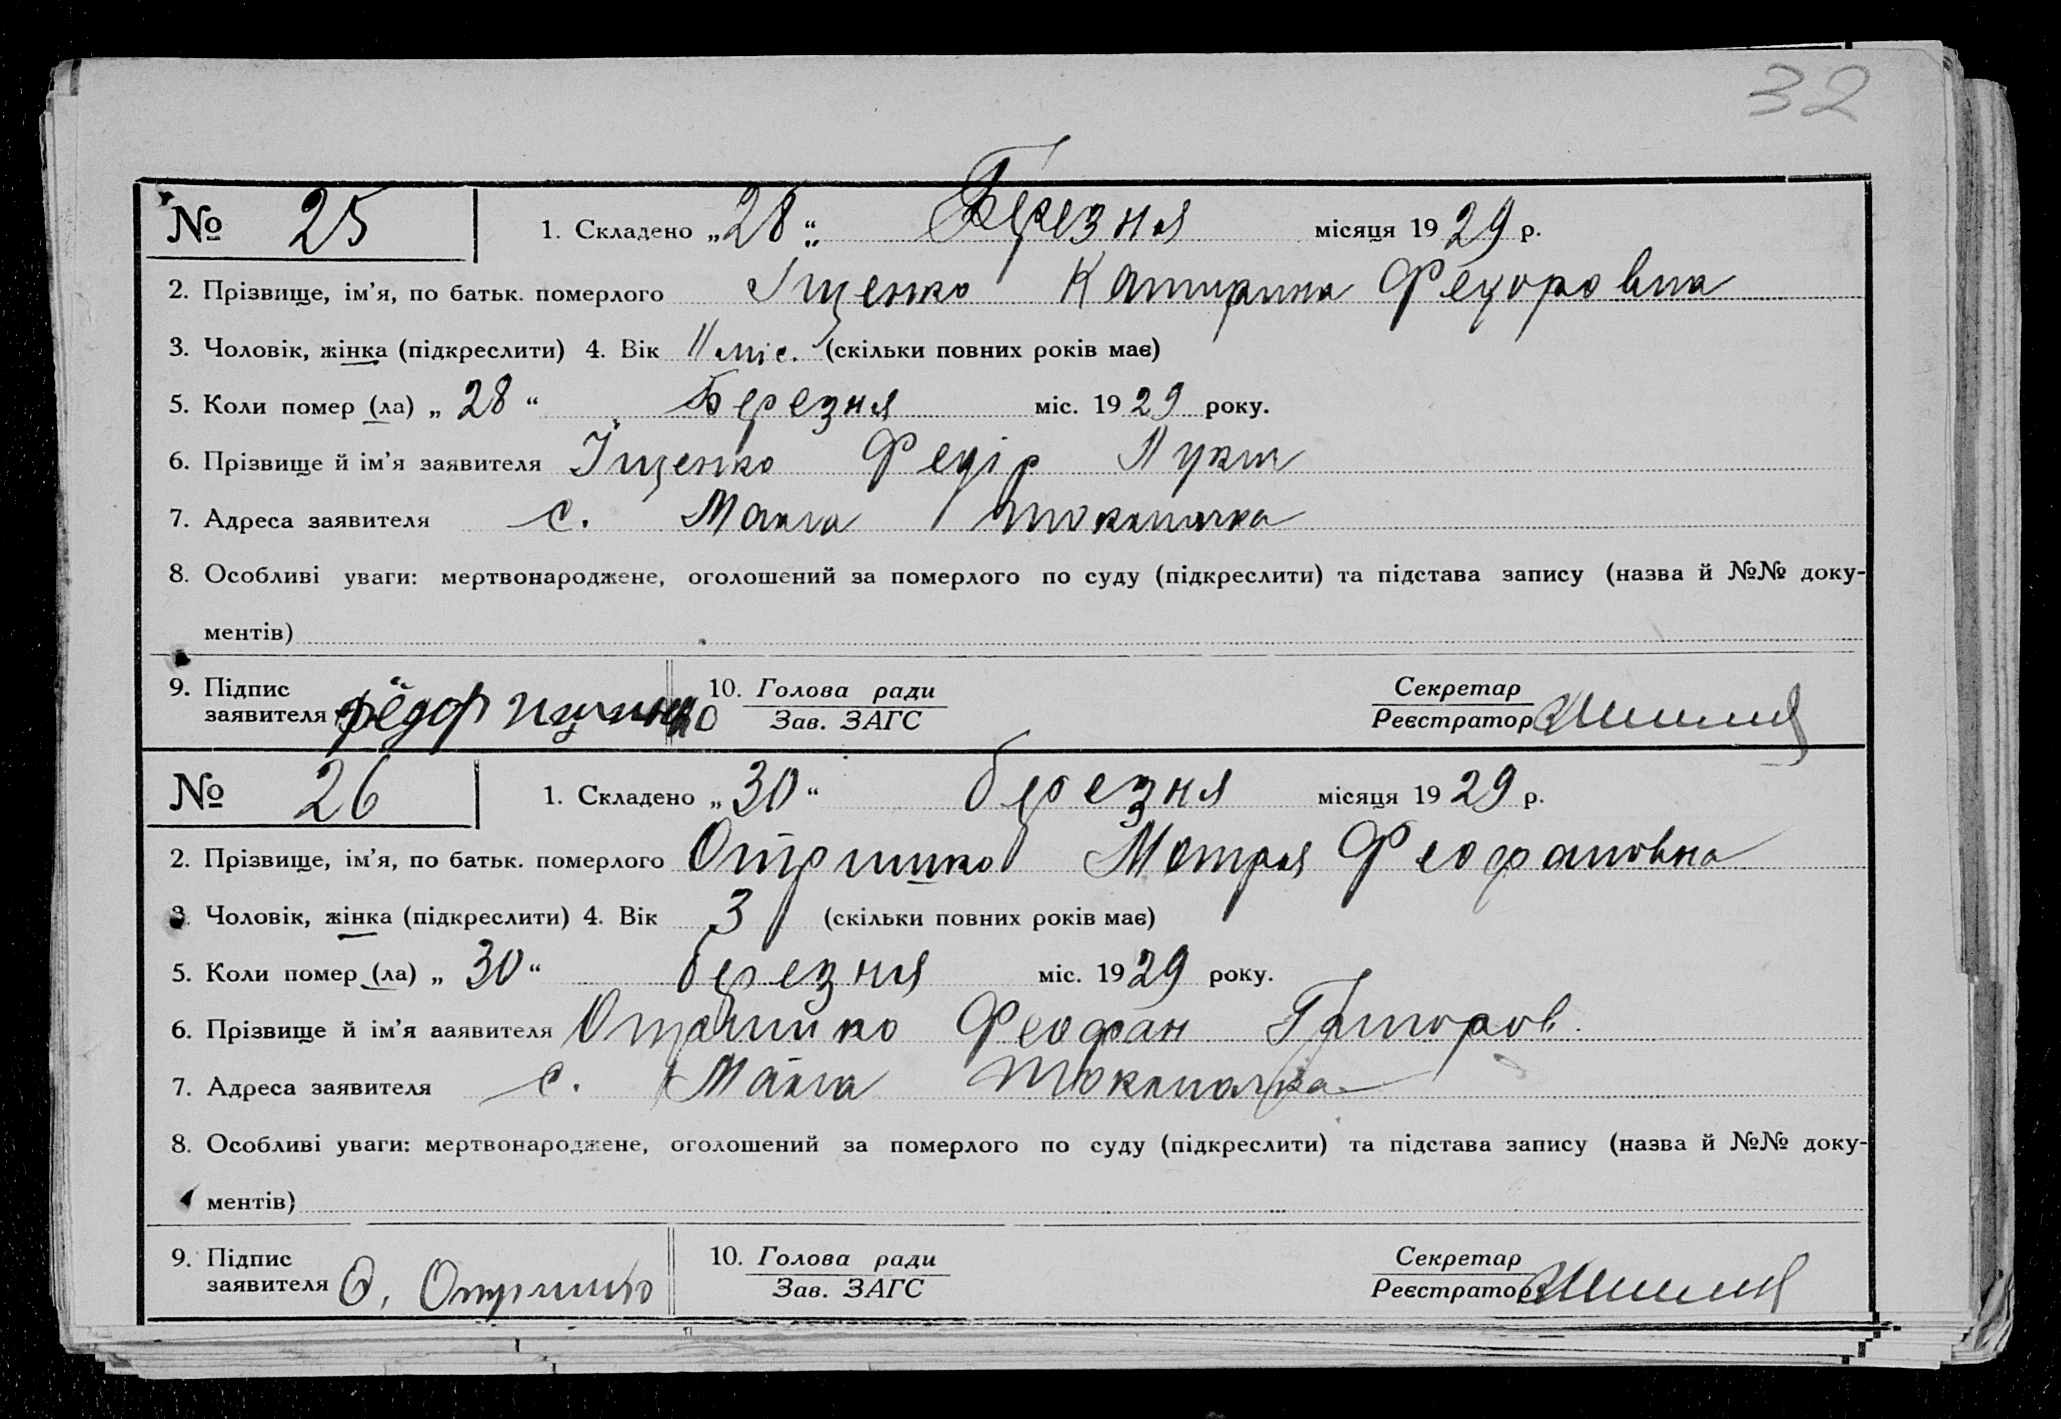 32
№ 25 1. Складено „28“ Березня місяця 1929 р.
2. Прізвище, ім’я, по батьк. померлого Іщенко Катирина Федоровна
3. Чоловік, жінка (підкреслити) 4. Вік 11 міс. (скільки повних років має)
5. Коли помер (ла) „28“ Березня міс. 1929 року.
6. Прізвище й ім’я заявителя Іщенко Федір Лукич
7. Адреса заявителя с. Мала Токмачка
8. Особливі уваги: мертвонароджене, оголошений за померлого по суду (підкреслити) та підстава запису (назва й №№ доку-
ментів)
9. Підпис заявителя Фёдор 10. Голова ради Секретар
Зав. ЗАГС Реєстратор
№ 26 1. Складено „30“ березня місяця 1929 р.
2. Прізвище, ім’я, по батьк. померлого Отришко Мотря Феофановна
3. Чоловік, жінка (підкреслити) 4. Вік 3 (скільки повних років має)
5. Коли помер (ла) „30“ березня міс. 1929 року.
6. Прізвище й ім’я ааявителя Отришко Феофан Григоров.
7. Адреса заявителя с. Мала Токмачка
8. Особливі уваги: мертвонароджене, оголошений за померлого по суду (підкреслити) та підстава запису (назва й №№ доку-
ментів)
9. Підпис заявителя Ф. Отришко 10. Голова ради Секретар
Зав. ЗАГС Реєстратор